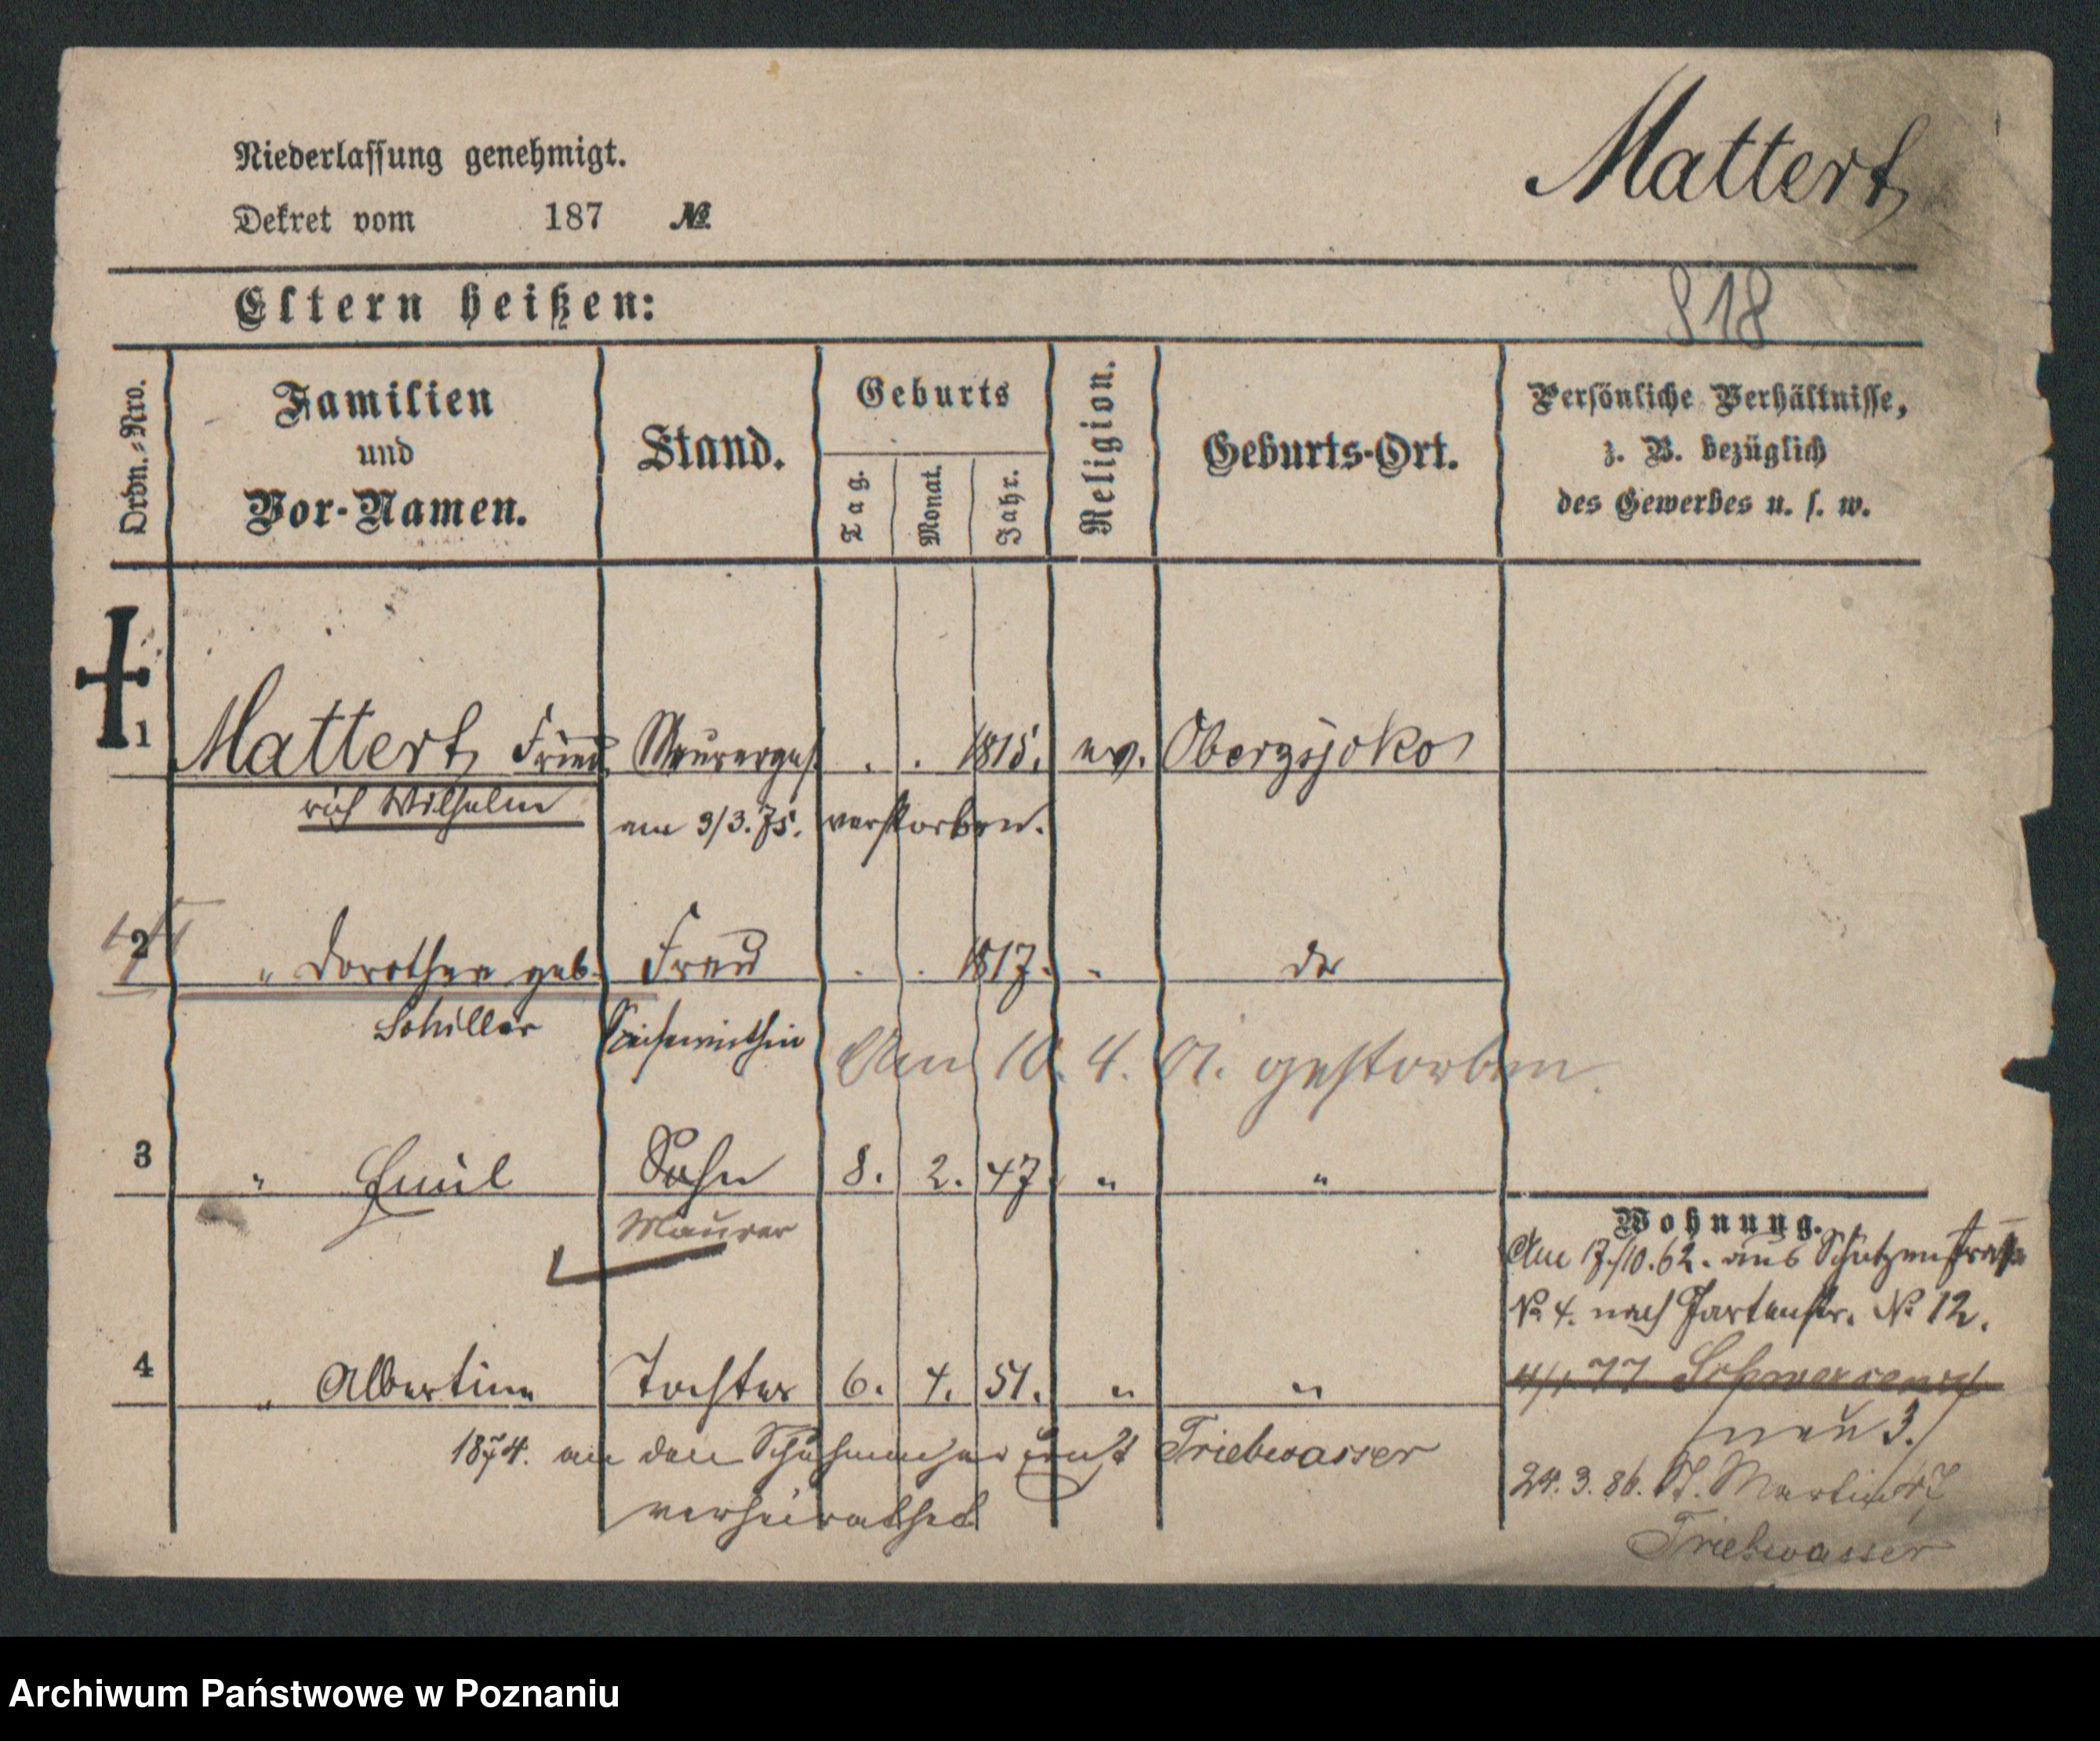 Mattert
Niederlassung genehmigt.
Dekret vom 187 №
818
Eltern heißen:
Ordn.-Nro.
Familien
und
Vor-Namen.
Stand.
Geburts
Tag.
Monat.
Jahr.
Religion.
Geburts-Ort.
Persönliche Verhältnisse,
z. B. bezüglich
des Gewerbes u. s. w.
1 Mattert Fried Maurerges . . 1815. ev. Obersjoko
rich Wilhelm
am 3/3.75. verstorben.
2 " Dorothea geb. Frau . . 1817. " do
Schiller
Am 10. 4. 91. gestorben.
3 " Emil Sohn 8. 2. 47 " "
Maurer
Wohnung.
Am 17./10.62. aus Schützenstraße
No 4. nach Gartenstr. No 12.
4 " Albertine Tochter 6. 4. 51. " "
neu 3.
1874. an den Schuhmacher Ernst Triebwasser
verheirathet
24. 3. 86. St. Martin 47
Triebwasser
Archiwum Państwowe w Poznaniu